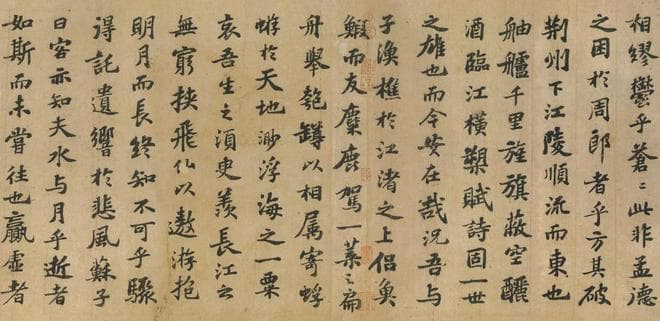 相繆鬱乎蒼〻此非孟德
之困於周郎者乎方其破
荊州下江陵順流而東也
舳艫千里旌旗蔽空釃
酒臨江橫槊賦詩固一世
之雄也而今安在哉況吾與
子漁樵於江渚之上侶魚
鰕而友麋鹿駕一葉之扁
舟舉匏罇以相屬寄蜉
蝣於天地渺浮海之一粟
哀吾生之須臾羨長江之
無窮挾飛仙以遨游抱
明月而長終知不可乎驟
得託遺響於悲風蘇子
曰客亦知夫水与月乎逝者
如斯而未嘗往也贏虛者